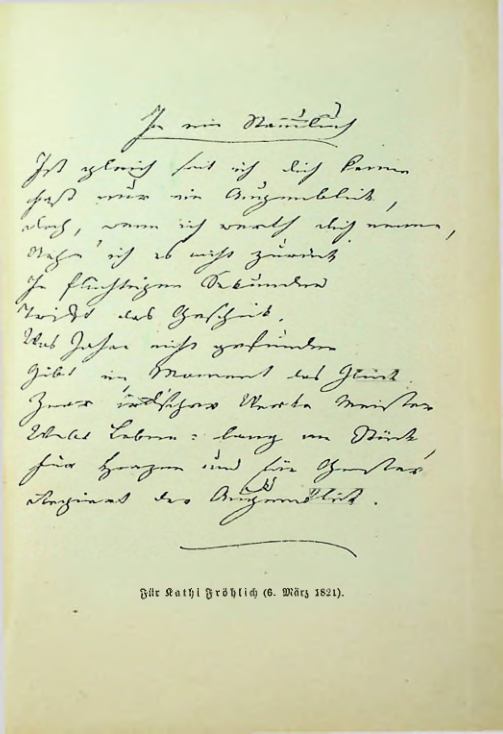 In ein Stammbuch
Ist gleich seit ich dich kenne
fast nur ein Augenblick,
doch, wenn ich werth dich nenne,
Nehm' ich es nicht zurück
In flüchtigen Sekunden
Trifft das Geschick.
Was Jahre nicht gefunden
Gibt im Moment das Glück.
Zwar ird'scher Werke Meister
Leben = lang am Stück
für Herzen und für Geister
Regiert der Augenblick.
Für Kathi Fröhlich (6. März 1821).